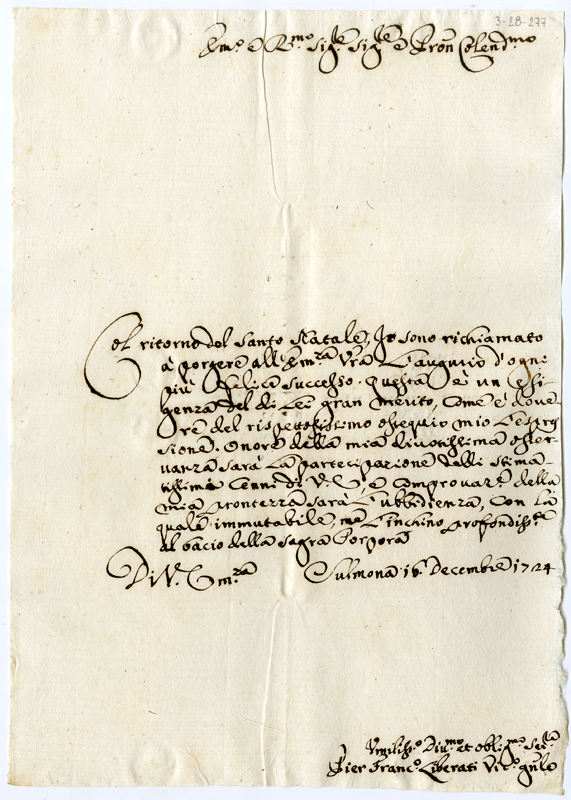 3-28-277
Em.º e R.mo Sig.re Sig.re e Pron Colend.mo
Col ritorno del Santo Natale, Io sono richiamato
à porgere all'Em.za Vra L'augurio d'ogni
più felice successo. Questa è un esi-
genza del di Lei gran merito, come è dove-
re del rispettosissimo ossequio mio L'espres-
sione. Onore della mia divotissima osser-
vanza sarà La partecipazione delli stima-
tissimi cenni di V. E., e comprovar.e della
mia prontezza sarà L'ubbidienza, con La
quale immutabile, me L'inchino profondiss.e
al bacio della sagra Porpora
Di V. Em.za Sulmona 16. Decembre 1724
Umiliss.º Div.mo et oblig.mo Ser.re
Pier Franc.º Liberati Vic.º gnle